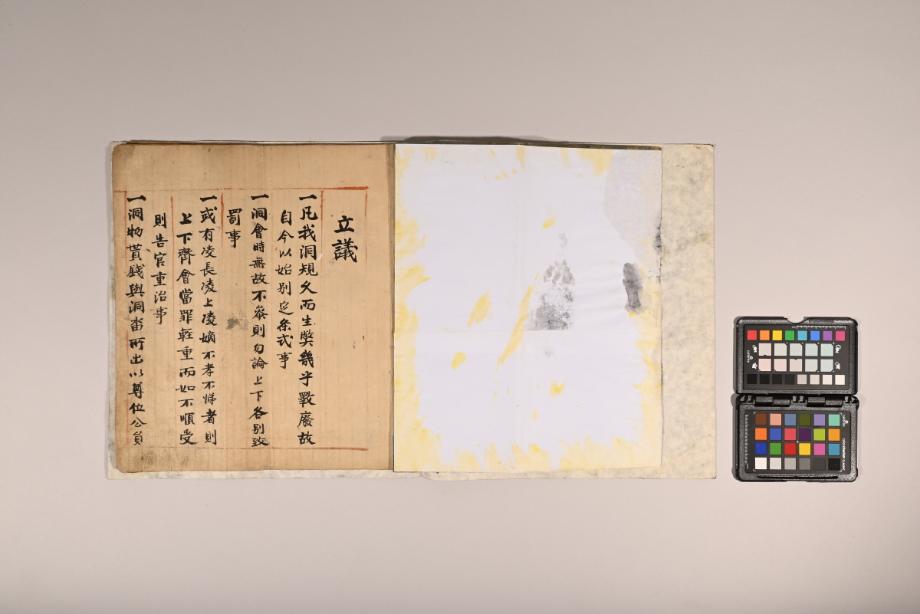 立議
一凡我洞規久而生獘幾乎戰廢故
自今以始別定条式事
一洞會時無故不參則勿論上下各別致
罰事
一或有凌長凌上凌嫡不孝不悌者則
上下齊會當罪輕重而如不順受
則告官重治事
一洞物貰錢與洞畓所出以尊位公員